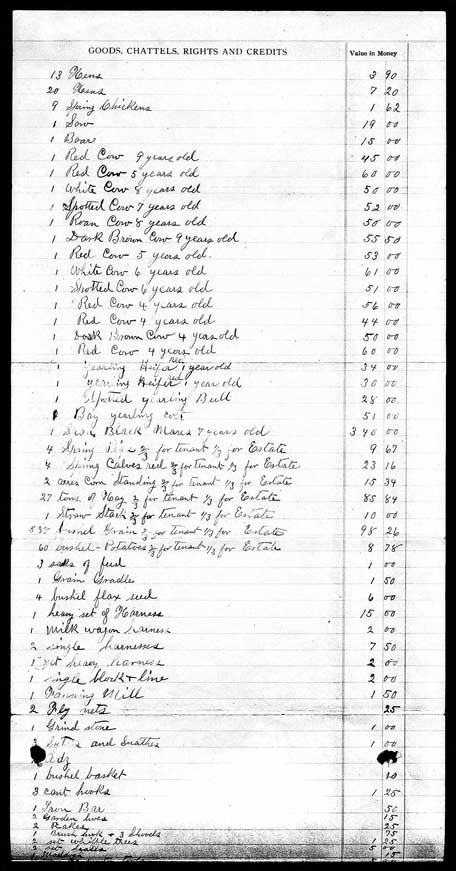 GOODS, CHATTELS, RIGHTS AND CREDITS Value in Money
13 Hens 3 90
20 Hens 7 20
9 Spring Chickens 1 62
1 Sow 19 00
1 Boar 15 00
1 Red Cow 9 years old 45 00
1 Red Cow 5 years old 60 00
1 White Cow 8 years old 50 00
1 Spotted Cow 7 years old 52 00
1 Roan Cow 8 years old 50 00
1 Dark Brown Cow 9 years old 55 50
1 Red Cow 5 years old. 53 00
1 White Cow 6 years old 61 00
1 Spotted Cow 6 years old 51 00
1 Red Cow 4 years old 56 00
1 Red Cow 4 years old 44 00
1 Dark Brown Cow 4 years old 50 00
1 Red Cow 4 years old 60 00
1 yearling Heifer 1 year old 34 00
1 yearling Heifer red 1 year old 30 00
1 Spotted yearling Bull 28 00
1 Bay yearling colt 51 00
1 Black Mares 7 years old 340 00
4 Spring Pigs 2/3 for tenant 1/3 for Estate 9 67
4 Spring Calves red 2/3 for tenant 1/3 for Estate 23 16
2 acres Corn Standing 2/3 for tenant 1/3 for Estate 15 34
27 tons of Hay 2/3 for tenant 1/3 for Estate 85 84
1 Straw Stack 2/3 for tenant 1/3 for Estate 10 00
bushel Grain 2/3 for tenant 1/3 for Estate 98 26
60 bushel Potatoes 2/3 for tenant 1/3 for Estate 8 78
3 sacks of feed 1 00
1 Grain Cradle 1 50
4 bushel flax seed 6 00
1 heavy set of Harness 15 00
1 milk wagon harness 2 00
2 single harnesses 7 50
1 set heavy harness 2 00
1 single block + line 2 00
1 Fanning Mill 1 50
2 Fly nets 25
1 Grind stone 1 00
2 and Snathes 1 00
Adz
1 bushel basket 10
3 cant hooks 1 25
1 Iron Bar 50
2 Garden hoes 15
2 Rakes 25
1 Brush hook + 3 Shovels 75
2 set whibble trees 1 25
2 5 00
1 15